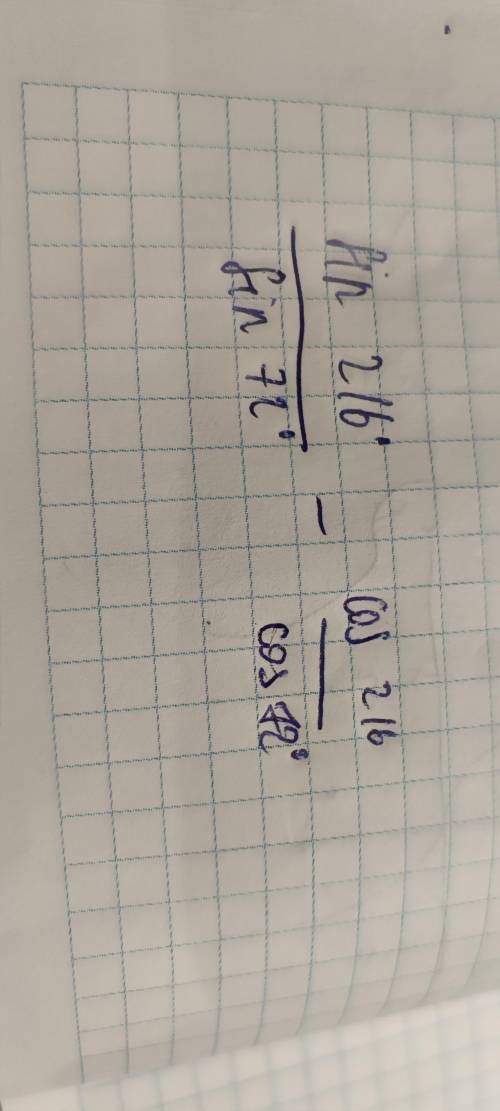 sin 216° / sin 72° − cos 216 / cos 72°